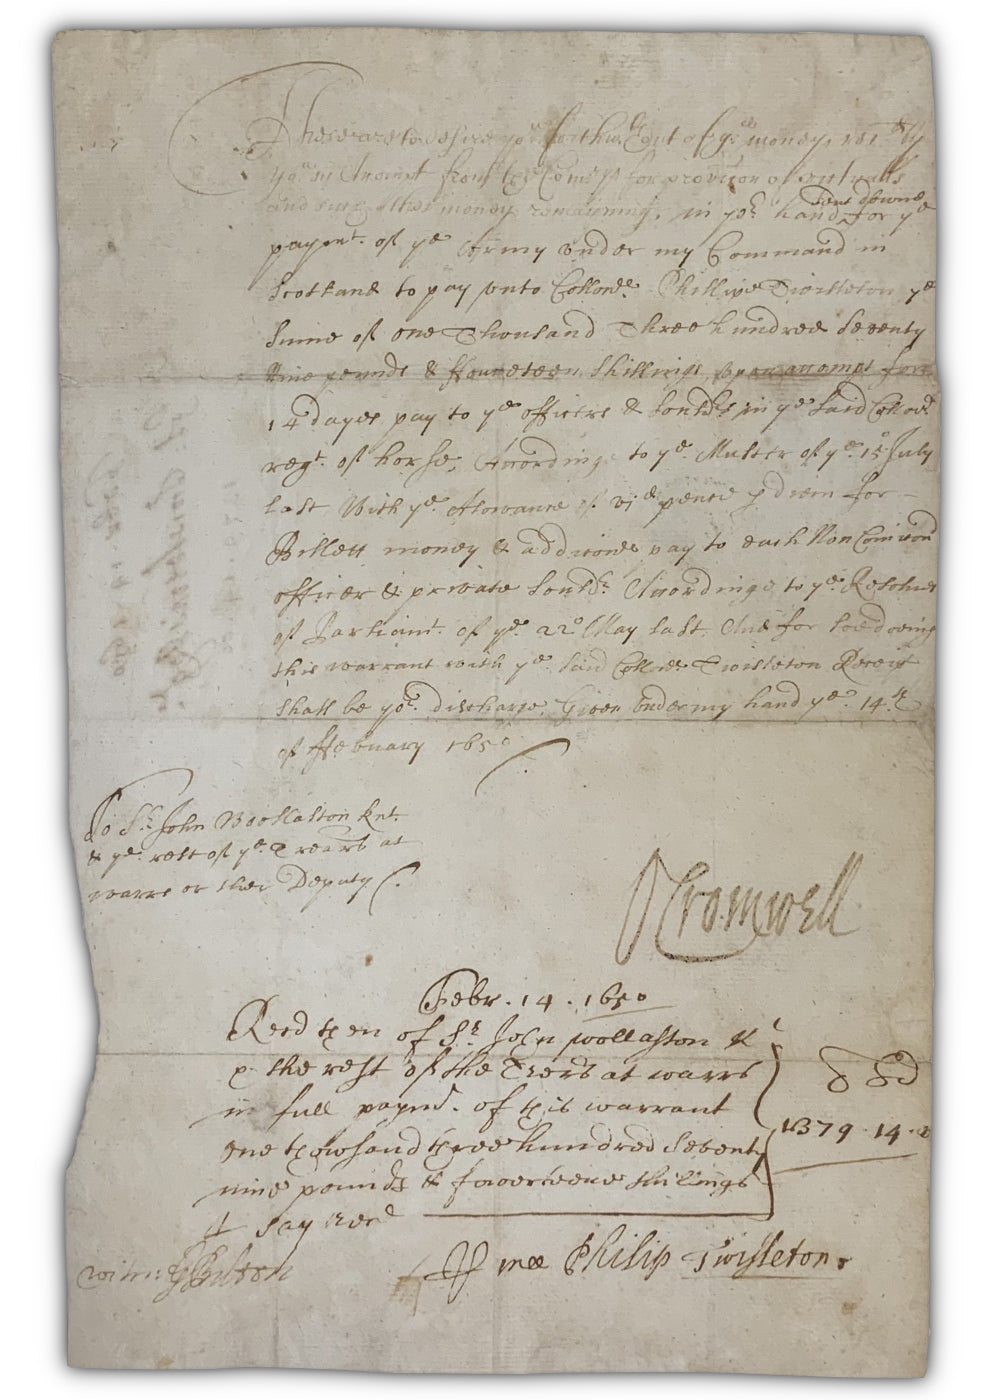 These are to desire you forthwth Out of ye moneys
you in Accompt from the Comrs for provicon of victualls
and such other moneys remaining in yor hand for ye
sent downe
paymt. of ye Army under my Command in
Scotland to pay unto Collonel Phillipe Twisleton ye
Summe of one Thousand Three hundred Seventy
Nine pounds & ffoureteen Shillings upon accompt for
14 dayes pay to ye officers & Sould: in ye Said Collo:
regt. of horse, Accordinge to ye. Muster of ye. 15o July
last With ye. Alowance of vjd pence p diem for
Billett money & addiconal pay to each Non Comicond
officer & private Sould:r Accordinge to ye. Resolves
of Parliamt. of ye. 22o May last. And for soe doeing
this warrant with ye. said Collonel Twisleton Receipt
shall be yor. discharge. Given under my hand ye. 14th
of ffebuary 1650
To Sr. John Woollaston Knt.
& ye. rest of ye. Trears at
warrs or their Deputy
O Cromwell
Febr. 14. 1650
Recd then of Sr John Wollaston &
the rest of the Trers at warrs
in full paymt. of this warrant
one thowsand three hundred Seventy
nine pounds & fowerteene shilings
I say Recd
1379. 14.
p mee Philip Twisleton.
witn: